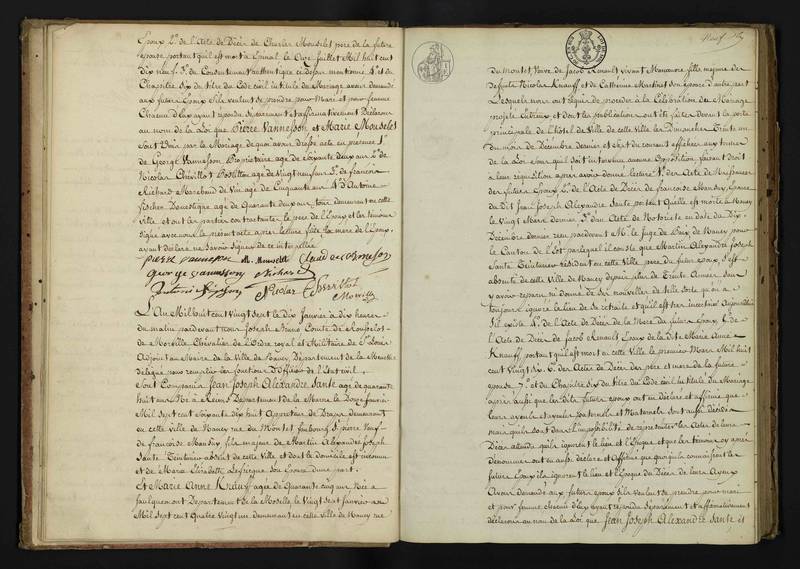 Epoux 2º de l'acte de Décès de Charles Mouselet pere de la future
epouse portant qu'il est mort à Epinal le Onze Juillet Mil huit cent
dix neuf. 3º du Consentement authentique ci dessus mentionné 4º et du
Chapitre Six du titre du Code civil intitulé du Mariage avons demandé
aux futurs Epoux s'ils veulent se prendre pour Mari et pour femme
Chacun d'eux ayant repondu separement et affirmativement Declarons
au nom de la Loi que Pierre Vannesson et Marie Mouselet
sont unis par le Mariage de quoi avons dressé acte en presence 1º
de George Vannesson Proprietaire agé de soixante deux ans 2º de
Nicolas Chevillot Postillon agé de vingt neuf ans 3º de francois
Richard Marchand de Vin agé de Cinquante ans 4º d'Antoine
fischer Domestique agé de Quarante deux ans, tous demeurant en cette
Ville et ont les parties contractantes le pere de l'Epoux et les temoins
signé avec nous le present acte apres lecture faite la mere de l'Epoux
ayant déclaré ne savoir signer de ce interpellée
pierre vannesson M. Mouselet
george vannesson Richard
Nicolas Chevillot
Morville
L'An Mil huit cent vingt sept le dix Janvier à dix heures
du matin pardevant nous Joseph Comte de
de Morville Chevalier de l'Ordre royal et Militaire de St Louis
Adjoint au Maire de la Ville de Nancy, Département de la Meurthe
délégué pour remplir les fonctions d'Officier de l'Etat civil.
Sont Comparus Jean Joseph Alexandre Santé agé de quarante
huit ans Né à Reims Département de la Marne le Douze Janvier
Mil sept cent soixante dix huit Appreteur de Draps demeurant
en cette ville de Nancy rue du Montet faubourg St pierre Veuf
de francoise Mansuy fils majeur de Martin Alexandre Joseph
Santé Teinturier absent de cette Ville et dont le domicile est inconnu
et de Marie Elisabeth son Epouse d'une part.
Et Marie Anne Knauff agée de Quarante cinq ans Née à
faulquemont Departement de la Moselle, le Vingt sept Janvier an
Mil sept cent Quatre vingt un demeurant en cette ville de Nancy rue
Neuf
du montet Veuve de Jacob Renault vivant Manoeuvre fille majeure des
defunts Nicolas Knauff et de Catherine Martinet son epouse d'autre part
Lesquels nous ont requis de proceder à la Célébration du Mariage
projeté entr'eux et dont les publications ont été faites devant la porte
principale de l'hôtel de Ville de cette ville les Dimanches Trente un
du mois de Décembre dernier et sept du courant affichées aux termes
de la Loi sans qu'il soit intervenu aucune Opposition, faisant droit
à leur requisition apres avoir donné lecture 1º des Actes de Naissances
des futurs Epoux 2º de l'Acte de Décès de francoise Mansuy, Epouse
du dit Jean Joseph Alexandre Santé portant Qu'elle est morte à Nancy
le Vingt Mars dernier 3º d'un Acte de Notoriété en date du Dix
Décembre dernier recu pardevant M. le Juge de Paix de Nancy pour
le Canton de l'Est par lequel il conste que Martin Alexandre Joseph
Santé Teinturier residant en cette Ville pere du futur epoux s'est
absenté de cette Ville de Nancy depuis plus de Trente Années sans
y avoir reparu ni donné de ses nouvelles de telle sorte qu'on a
toujours ignoré le lieu de sa retraite et qu'il est tres incertain Aujourd'hui
S'il existe 4º de l'Acte de Décès de la Mere du futur Epoux 5º de
l'Acte de Décès de Jacob Renault Epoux de la dite Marie Anne
Knauff portant qu'il est mort en cette Ville le premier Mars Mil huit
cent Vingt six 6º des Actes de Décès des pere et mere de la future
epouse 7º et du Chapitre Six du titre du Code civil intitulé du Mariage
apres aussi que les dits futurs epoux ont declaré et affirmé que
leurs ayeuls et ayeules paternels et Maternels sont aussi décédés
mais qu'ils sont dans l'impossibilité de representer les Actes de leurs
Décès attendu qu'ils ignorent le lieu et l'Epoque et que les temoins cy apres
dénommés ont aussi déclaré et Affirmé que quoiqu'ils connaissent les
futurs Epoux ils ignorent le lieu et l'Epoque du Décès de leurs Ayeux
Avons demandé aux futurs epoux s'ils veulent se prendre pour mari
et pour femme chacun d'eux ayant repondu separement et affirmativement
déclarons au nom de la Loi que Jean Joseph Alexandre Santé et